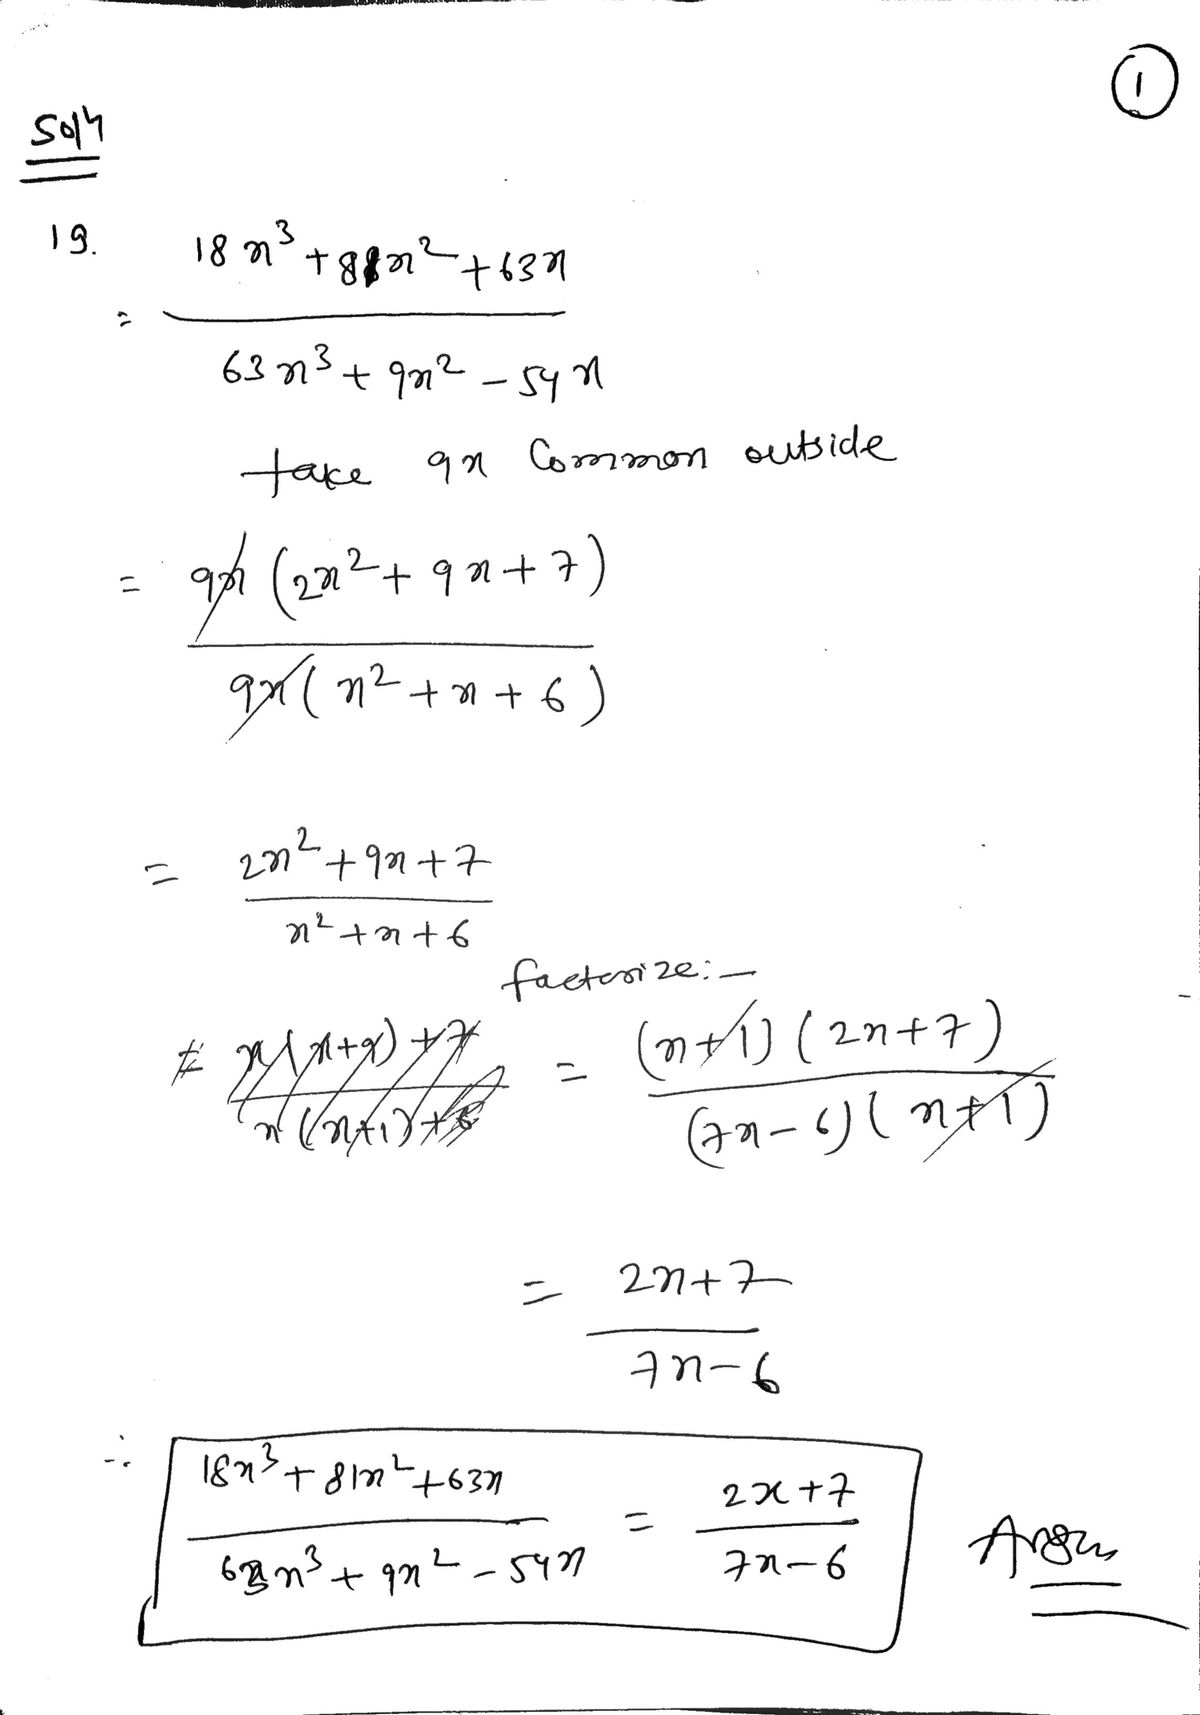 1
Soln
19.
18x³ + 81x² + 63x
=
63x³ + 9x² - 54x
take 9x Common outside
= 9x (2x² + 9x + 7)
9x (x² + x + 6)
= 2x² + 9x + 7
x² + x + 6
factorize:-
= (x+1) (2x+7)
(7x-6) (x+1)
= 2x+7
7x-6
∴ 18x³ + 81x² + 63x = 2x+7
63x³ + 9x² - 54x 7x-6